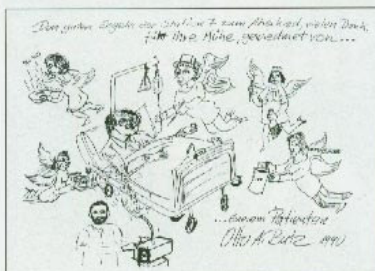 Den guten Engeln der Station 7 zum Abschied, vielen Dank
für Ihre Mühe, gewidmet von...
...einem Patienten
Otto 1990